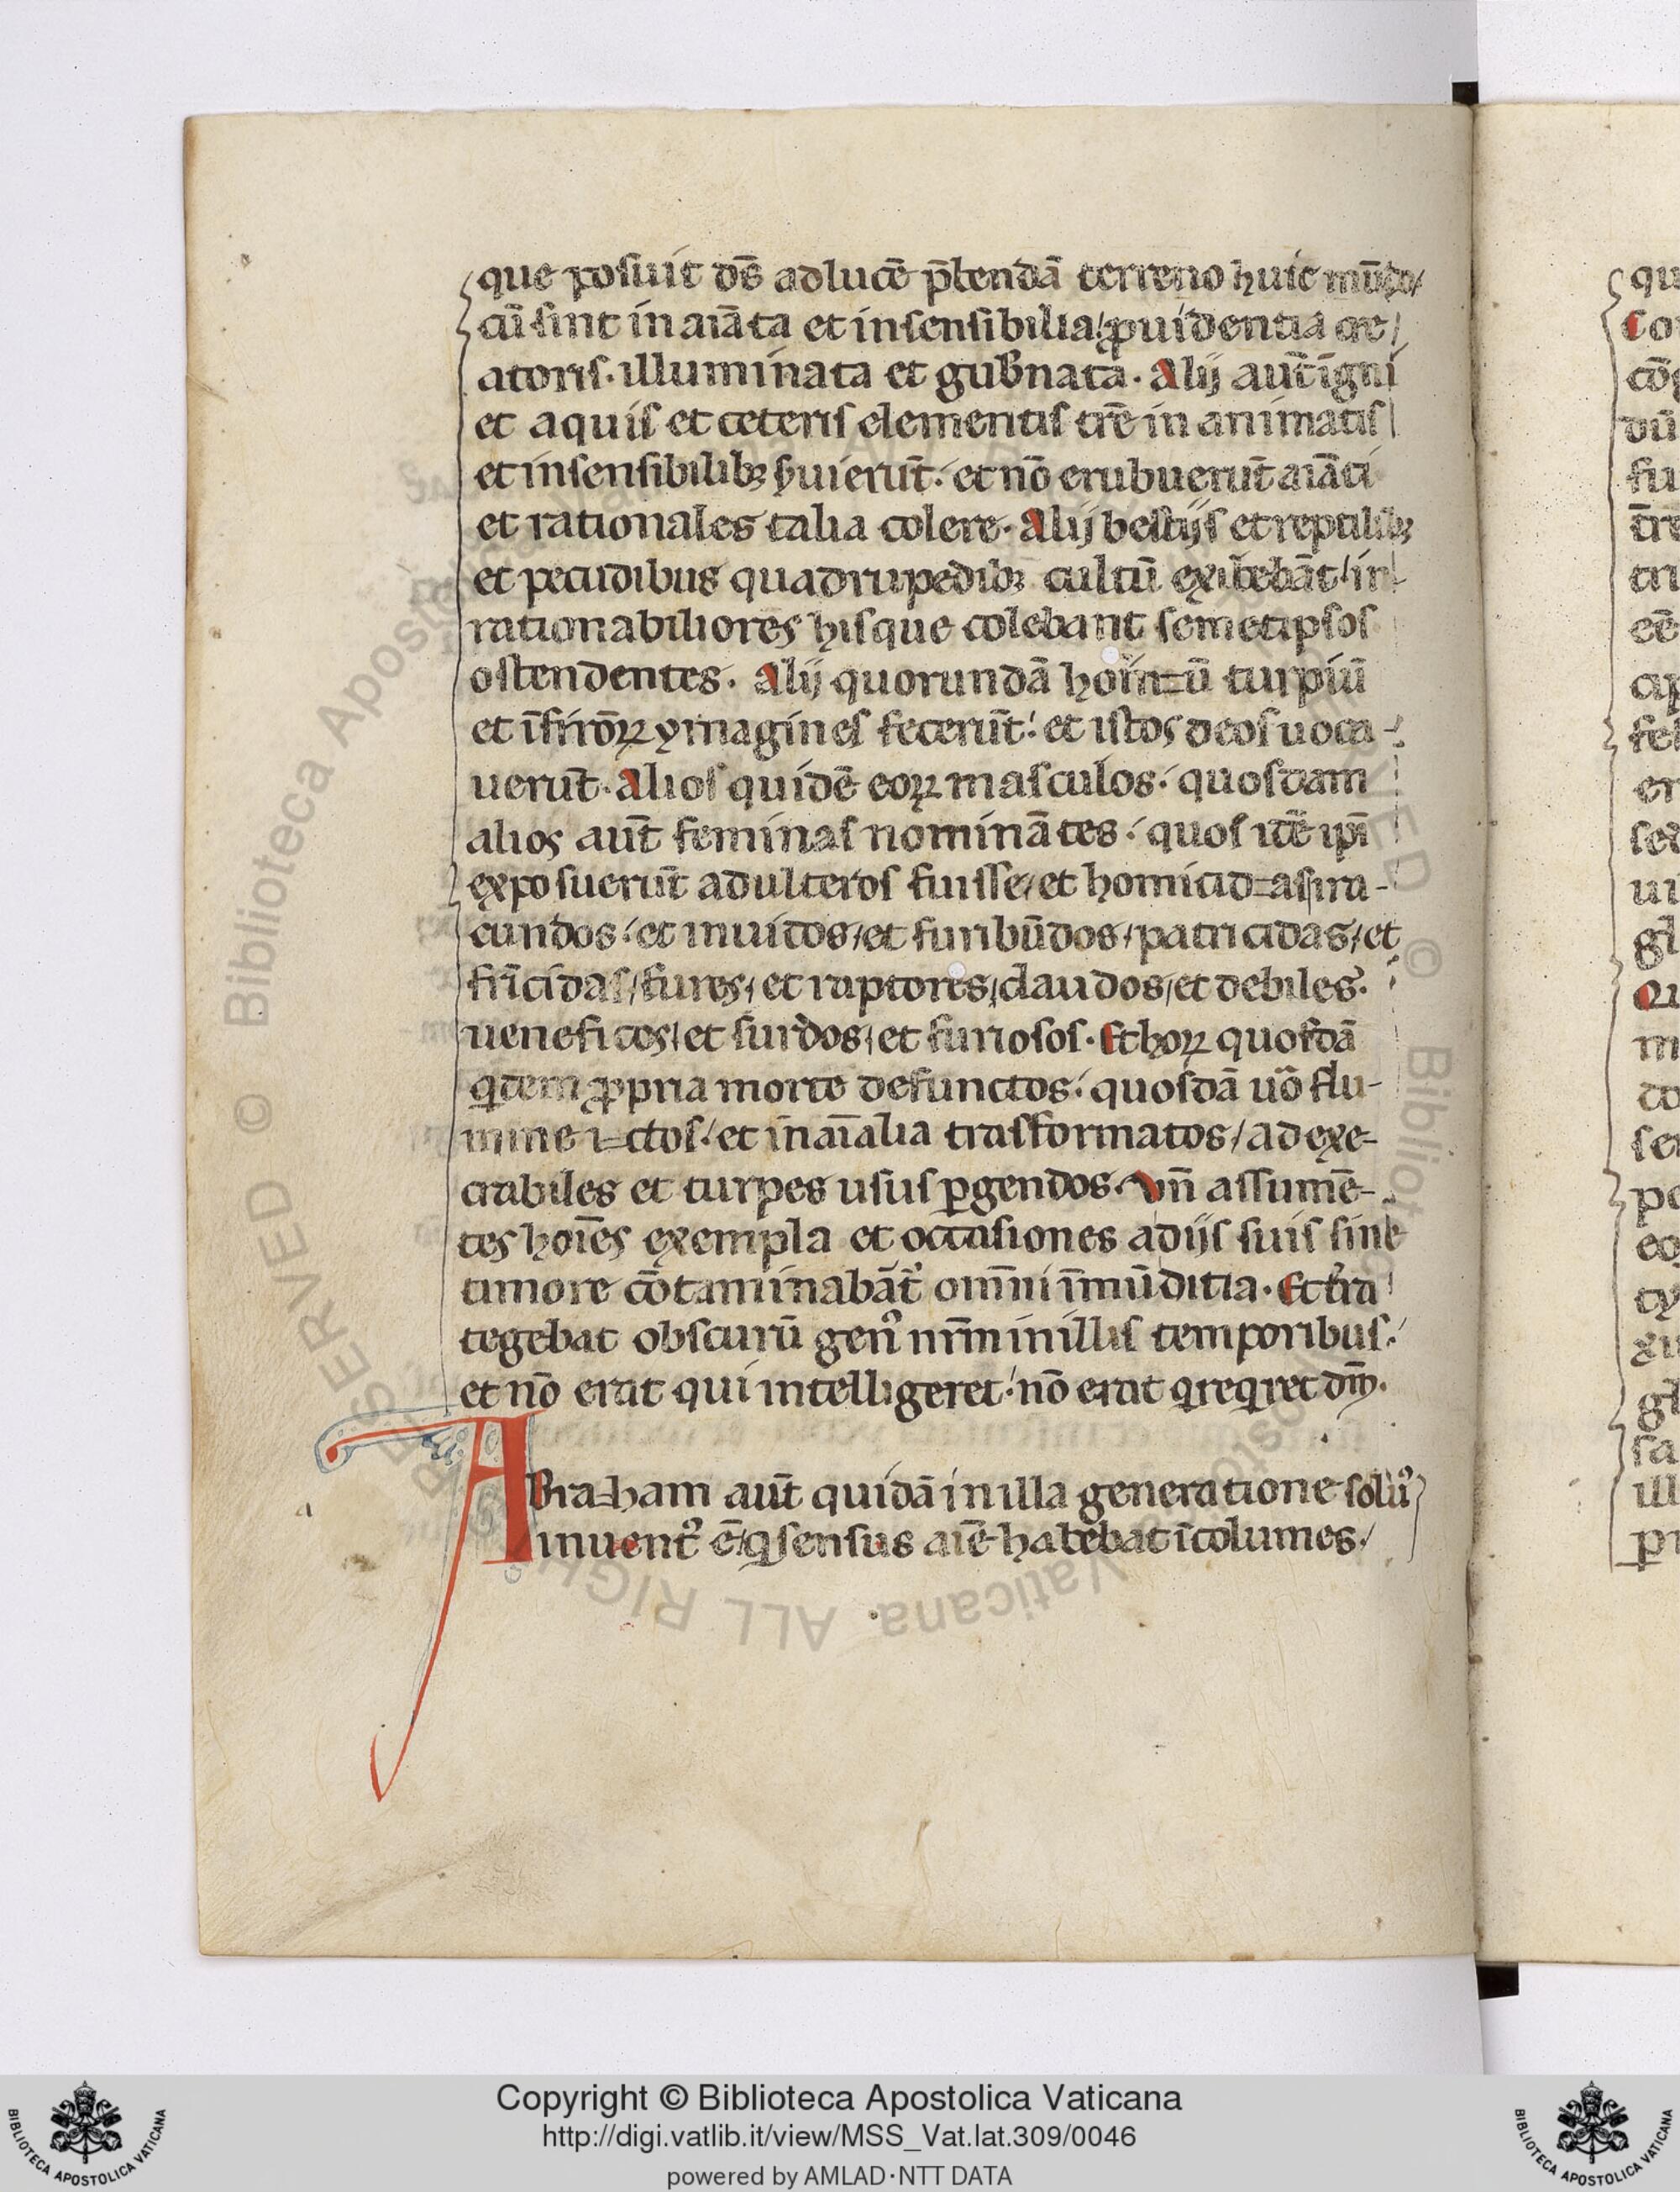 que posuit ds̄ ad lucē p̄bendā terreno huic mūdo/
cū sint in aīata et insensibilia! ꝓuidentia cre/
atoris. illuminata et gub̄nata. Alij aut̄ igni
et aquis et ceteris elementis tr̄e in animatis
et insensibilibꝫ s̄uierūt. et nō erubuerūt aīati
et rationales talia colere. Alij bestijs et reptilibꝫ
et pecudibus quadrupedibꝫ cultū exibebāt! ir-
rationabiliores hisque colebant semetipsos
ostendentes. Alij quorundā hoīm=ū turpiū
et īfirmoꝝ ymagines fecerūt! et istos deos uoca-
uerūt. Alios quidē eoꝝ masculos. quosdam
alios aūt feminas nominātes. quos idē ip̄i
exposuerūt adulteros fuisse/ et homicid=as ira-
cundos. et inuidos/ et furibūdos/ patricidas/ et
fr̄icidas/ fures/ et raptores/ claudos/ et debiles.
ueneficos/ et surdos/ et furiosos. Et hoꝝ quosdā
qidem ꝓpria morte defunctos. quosdā uō flu-
mine i=ctos. et in aīalia trasformatos/ ad exe-
crabiles et turpes usus ꝑgendos. Vn̄ assumē-
tes hoīes exempla et occasiones a dijs suis sine
timore cōtaminabāt᷑ omn̄i īmūditia. Et tr̄a
tegebat obscurū genꝰ nr̄m in illis temporibus.
et nō erat qui intelligeret! nō erat qi reqiret dm̄.
Abra=ham aūt quidā in illa generatione solꝰ
inuentꝰ ē/ qi sensus aīe habebat īcolumes./
Copyright © Biblioteca Apostolica Vaticana
http://digi.vatlib.it/view/MSS_Vat.lat.309/0046
powered by AMLAD·NTT DATA